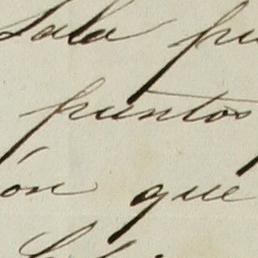 Sala pu
puntos
ón que